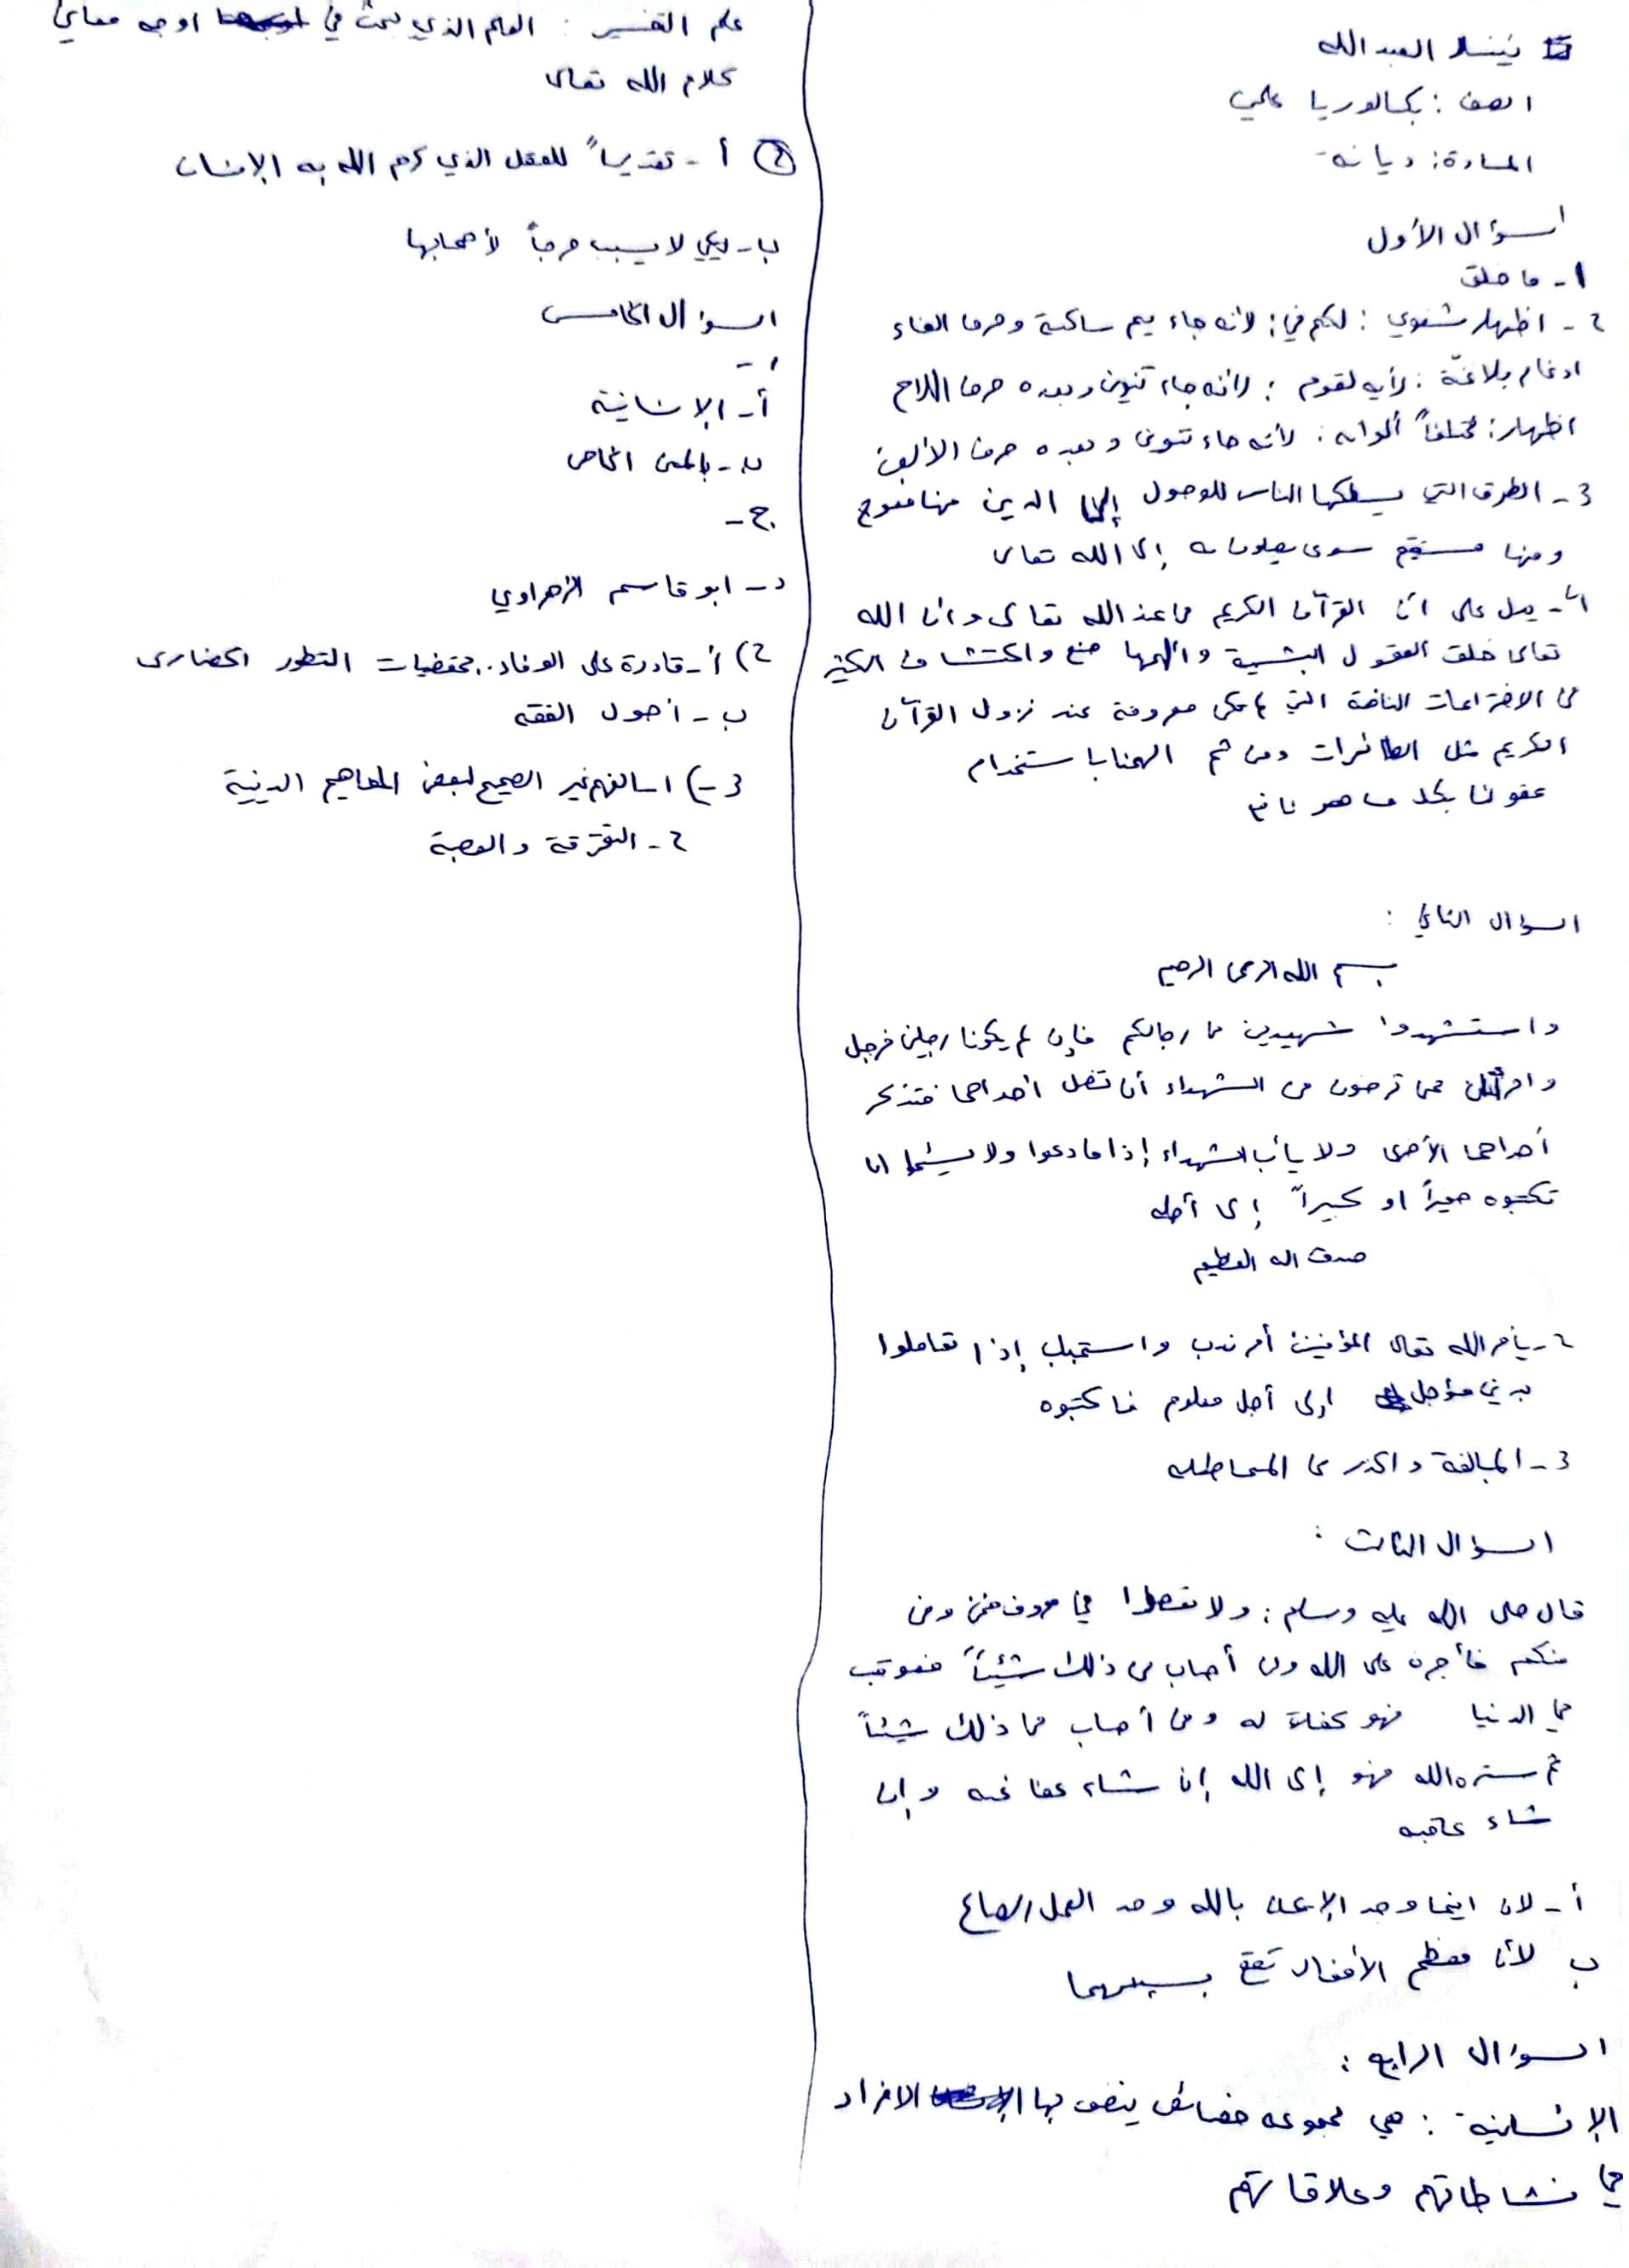 العبد الله
الصف : بكالوريا علمي
المادة : ديانة
السؤال الأول
1- ما خلق
2- اظهار شفوي : لكم في : لأنه جاء ميم ساكنة وحرف الفاء
ادغام بلاغنّة : لأية لقوم : لأنه جاء تنوين وبعده حرف اللام
اظهار : مختلفاً ألوانه : لأنه جاء تنوين وبعده حرف الألف
3- الطرق التي يسلكها الناس للوصول إلى الدين منها معوج
ومنها مستقيم سوي يصلون به إلى الله تعالى
4- يدل على أن القرآن الكريم من عند الله تعالى وأن الله
تعالى خلق العقول البشرية وألهمها صنع واكتشاف الكثير
من الاختراعات النافعة التي لم تكن معروفة عند نزول القرآن
الكريم مثل الطائرات ومن ثم الهمنا باستخدام
عقولنا بكل ما هو نافع
السؤال الثاني :
بسم الله الرحمن الرحيم
واستشهدوا شهيدين من رجالكم فإن لم يكونا رجلين فرجل
وامرأتان ممن ترضون من الشهداء أن تضل أحداهما فتذكر
أحداهما الأخرى ولا يأب الشهداء إذا ما دعوا ولا تسئموا ان
تكتبوه صغيراً او كبيراً إلى أجله
صدق الله العظيم
2- يأمر الله تعالى المؤمنين أمر ندب واستحباب إذا تعاملوا
بدين مؤجل إلى أجل معلوم فاكتبوه
3- المبالغة والحذر من المماطلة
السؤال الثالث :
قال صلى الله عليه وسلم : ولا تعصوا في معروف فمن وفى
منكم فأجره على الله ومن أصاب من ذلك شئياً فعوقب
في الدنيا فهو كفارة له ومن أصاب من ذلك شيئاً
ثم ستره الله فهو إلى الله إن شاء عفا عنه وإن
شاء عاقبه
أ- لان اينما وجد الإيمان بالله وجد العمل الصالح
ب لأن معظم الأفعال تقع بسببهما
السؤال الرابع :
الإنسانية : هي مجموعة خصائص يتصف بها الافراد
في نشاطاتهم وعلاقاتهم
علم التفسير : العلم الذي يبحث في اوجه معاني
كلام الله تعالى
2 أ- تقديساً للعقل الذي كرم الله به الإنسان
ب- لكي لا يسبب حرجاً لأصحابها
السؤال الخامس
1-
أ- الإنسانية
ب- بالمعنى الخاص
ج-
د- ابو قاسم الزهراوي
2) أ- قادرة على الوفاء بمقتضيات التطور الحضاري
ب- أصول الفقه
3-) 1- الفهم غير الصحيح لبعض المفاهيم الدينية
2- التفرقة والعصبة